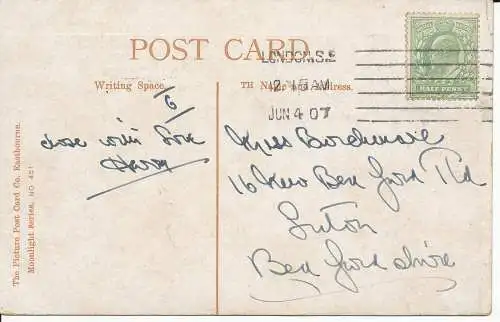 POST CARD.
Writing Space.
TH Name and Address.
LONDON.S.E
12.15AM
JUN 4 07
HALF PENNY
6
close with Love
Harry
Miss Borehmare
16 New Bed ford Rd
Luton
Bed fordshire
The Picture Post Card Co. Eastbourne.
Moonlight series. NO 421